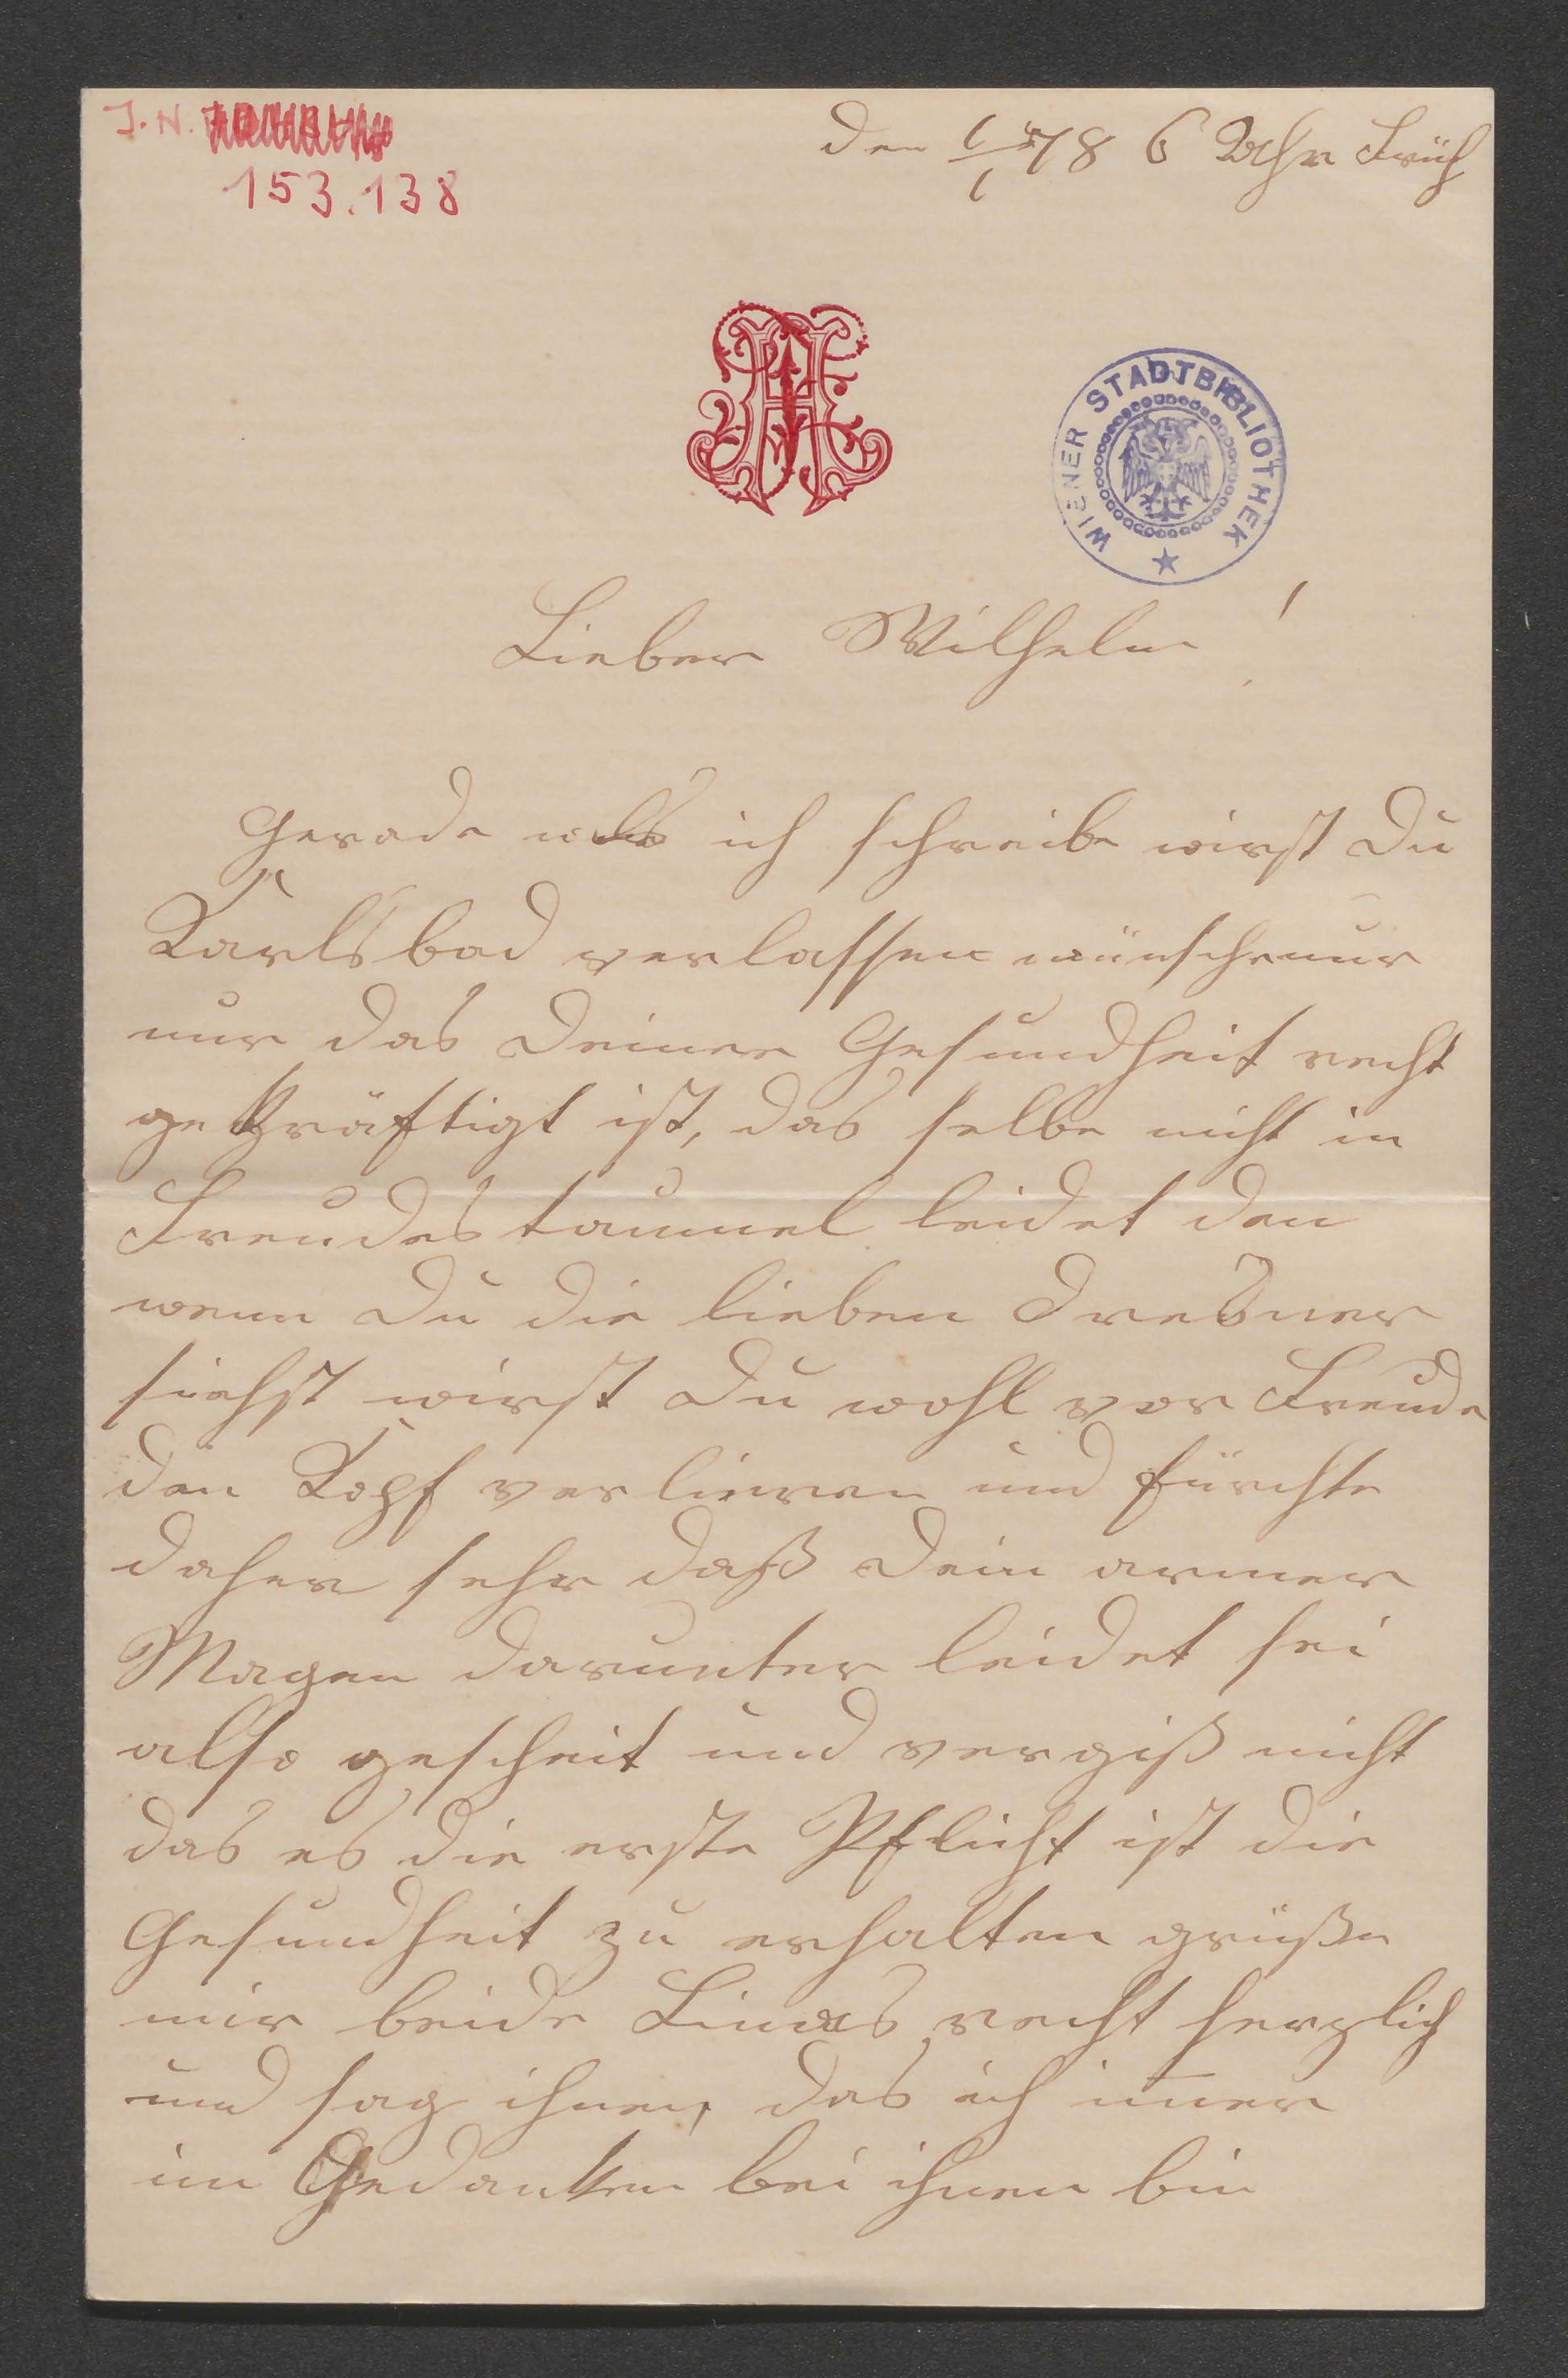 J. N.
153.138
den 1/1 78 6 Uhr Früh
WIENER STADTBIBLIOTHEK
Lieber Wilhelm!
Gerade als ich schreibe wirst Du
Karlsbad verlassen wünsche nur
nur das Deiner Gesundheit recht
gekräftigt ist, das selbe nicht in
Freudestaumel leidet den
wenn Du die lieben Dresdner
siehst wirst Du wohl vor Freude
den Kopf verlieren und fürchte
daher sehr daß Dein armer
Magen darunter leidet sei
also gescheit und vergiß nicht
das es die erste Pflicht ist die
Gesundheit zu erhalten grüße
mir beide Linas recht herzlich
und sag ihnen, das ich im̅er
im Gedanken bei ihnen bin